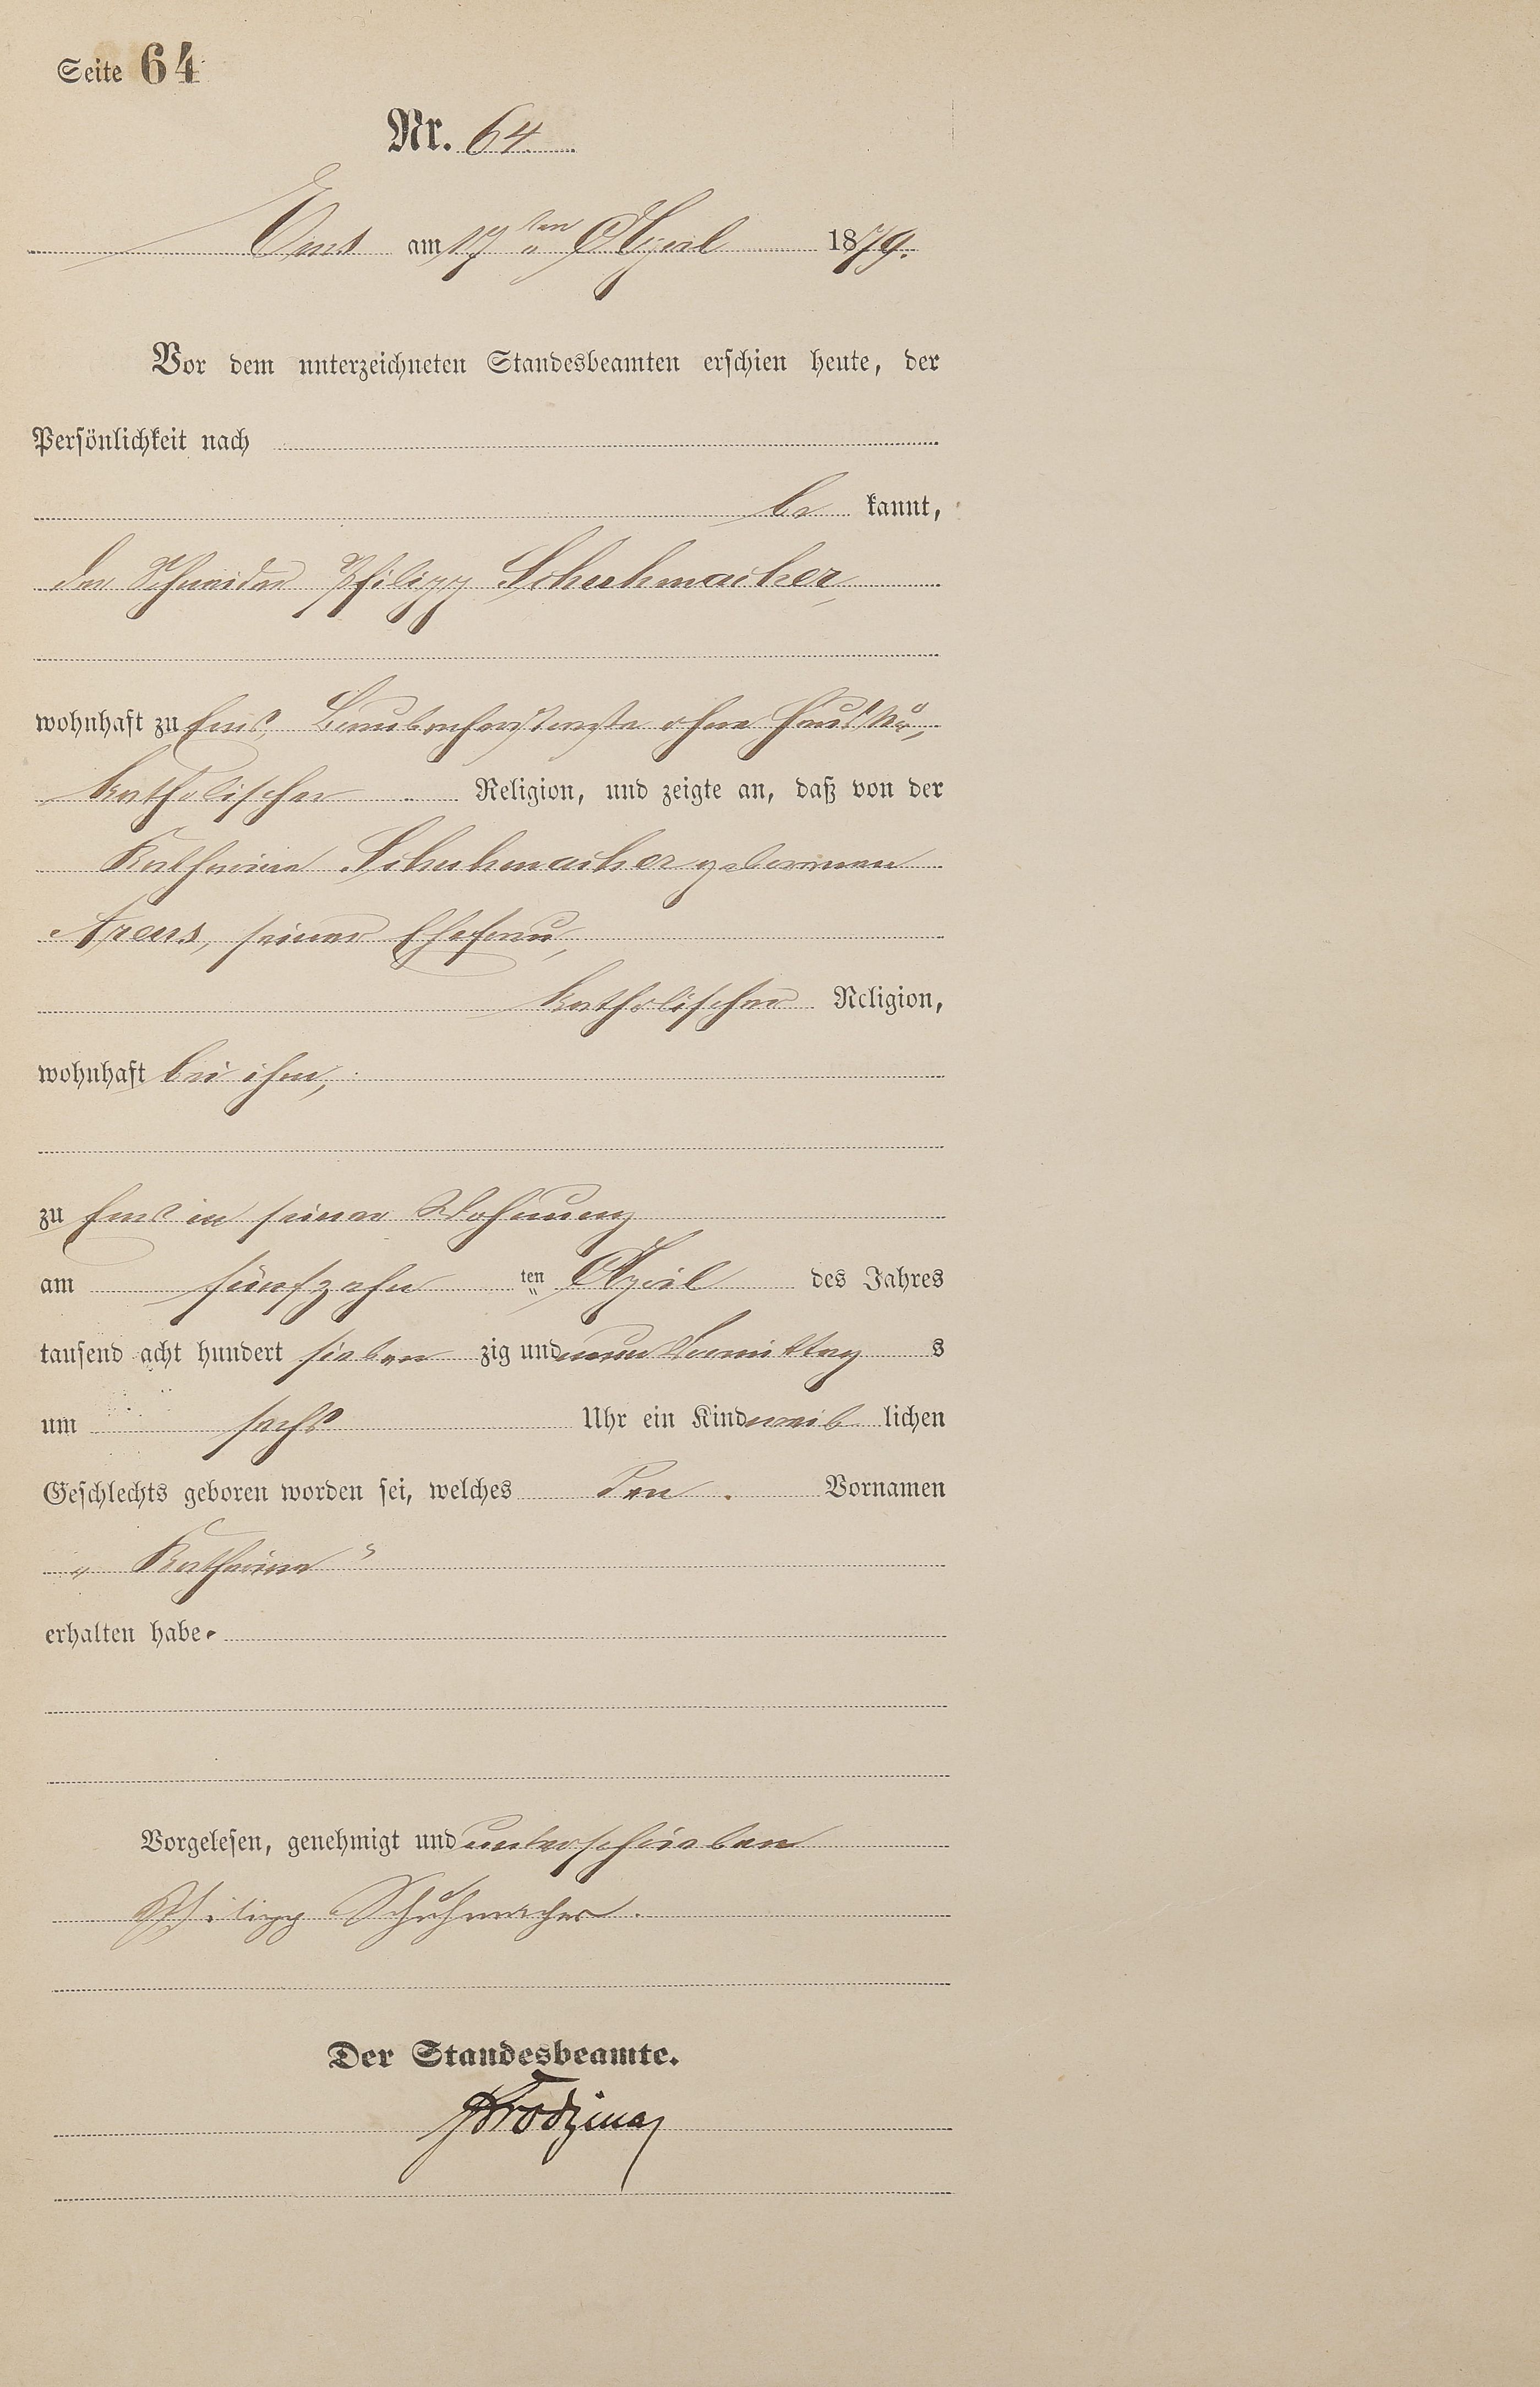 Seite 64
Nr. 64.
Ems am 17ten April 1879.
Vor dem unterzeichneten Standesbeamten erschien heute, der
Persönlichkeit nach
be kannt,
der Schneider Philipp Schuhmacher,
wohnhaft zu Ems, ohne Haus No,
katholischer Religion, und zeigte an, daß von der
Katharina Schuhmacher geborenen
Arens, seiner Ehefrau,
katholischer Religion,
wohnhaft bei ihm,
zu Ems in seiner Wohnung
am fünfzehn ten April des Jahres
tausend acht hundert sieben zig und neun Vormittag s
um sechs Uhr ein Kind weib lichen
Geschlechts geboren worden sei, welches den Vornamen
„Katharina"
erhalten habe.
Vorgelesen, genehmigt und unterschrieben
Philipp Schuhmacher.
Der Standesbeamte.